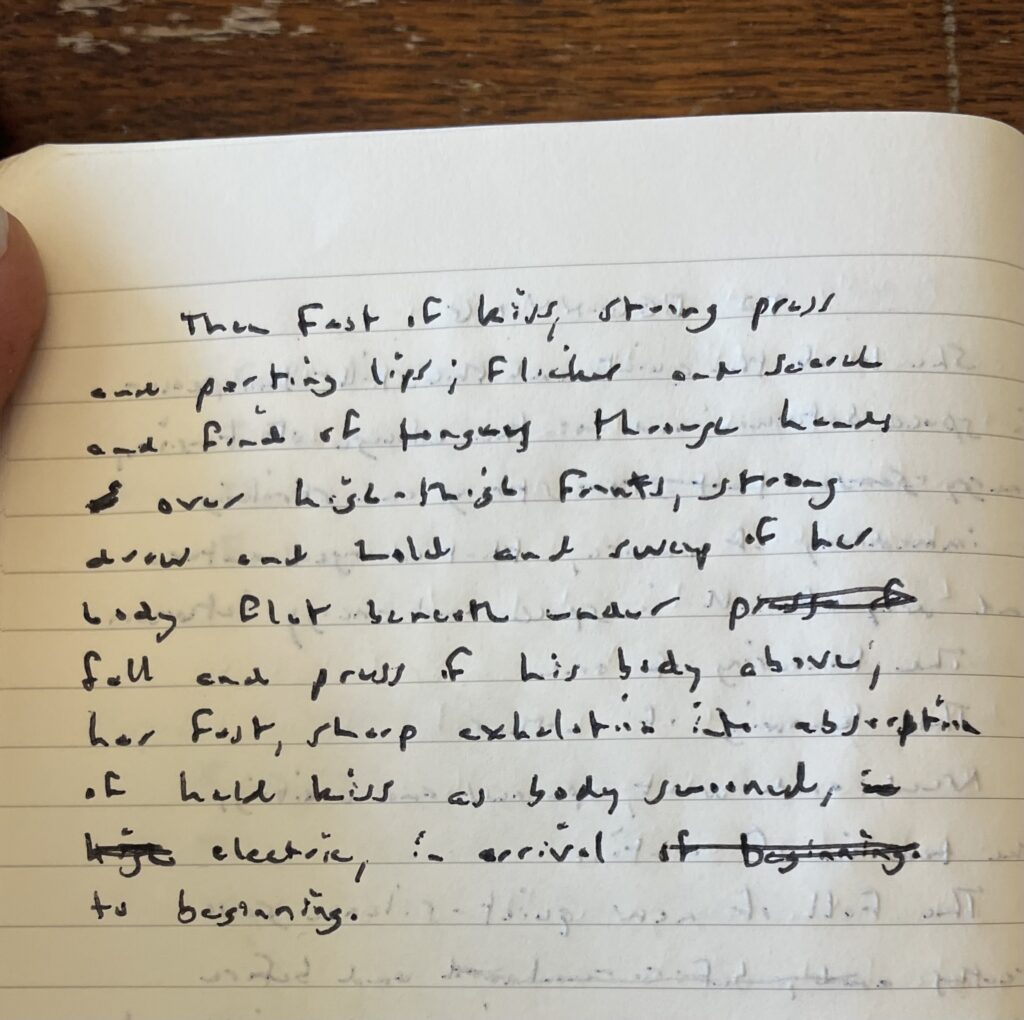 Then fast of kiss, strong press
and parting lips; flicker and search
and find of tongues through hands
over high-thigh fronts, strong
draw and hold and sweep of her
body flat beneath under press of
fall and press of his body above;
her fast, sharp exhalation into absorption
of held kiss as body swooned, in
high electric, in arrival of beginning.
to beginning.